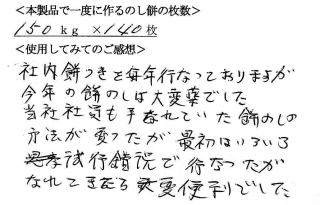 <本製品で一度に作るのし餅の枚数>
150kg ×140枚
<使用してみてのご感想>
社内餅つきを毎年行なっておりますが
今年の餅のしは大変楽でした
当社社員も手なれていた餅のしの
方法が変ったが最初はいろいろ
試行錯誤で行なったが
なれてきたら 便利でした